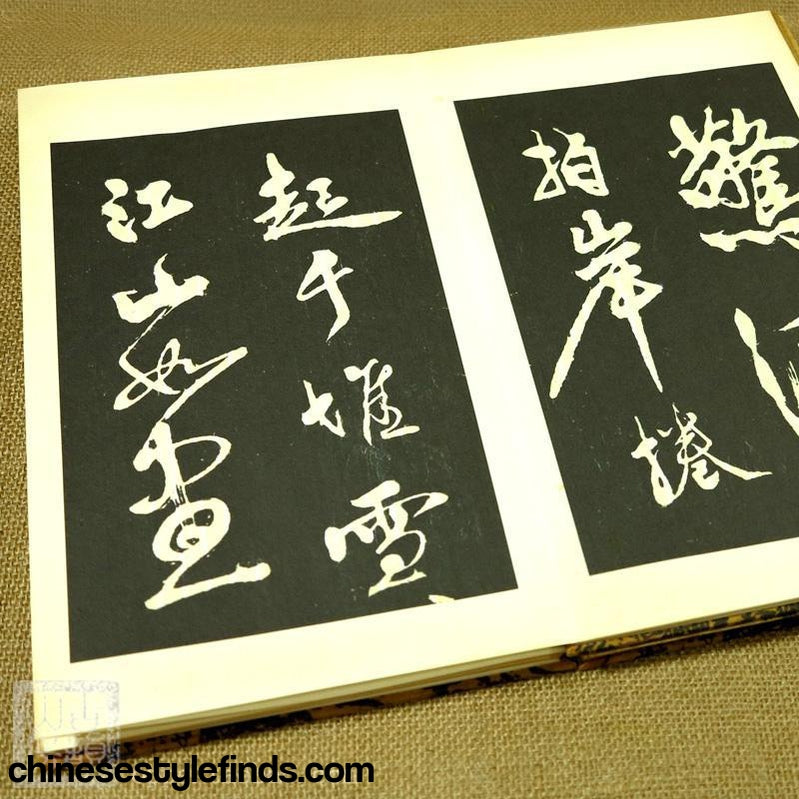 驚
拍岸捲
起千堆雪
江山如畫
chinesestylefinds.com